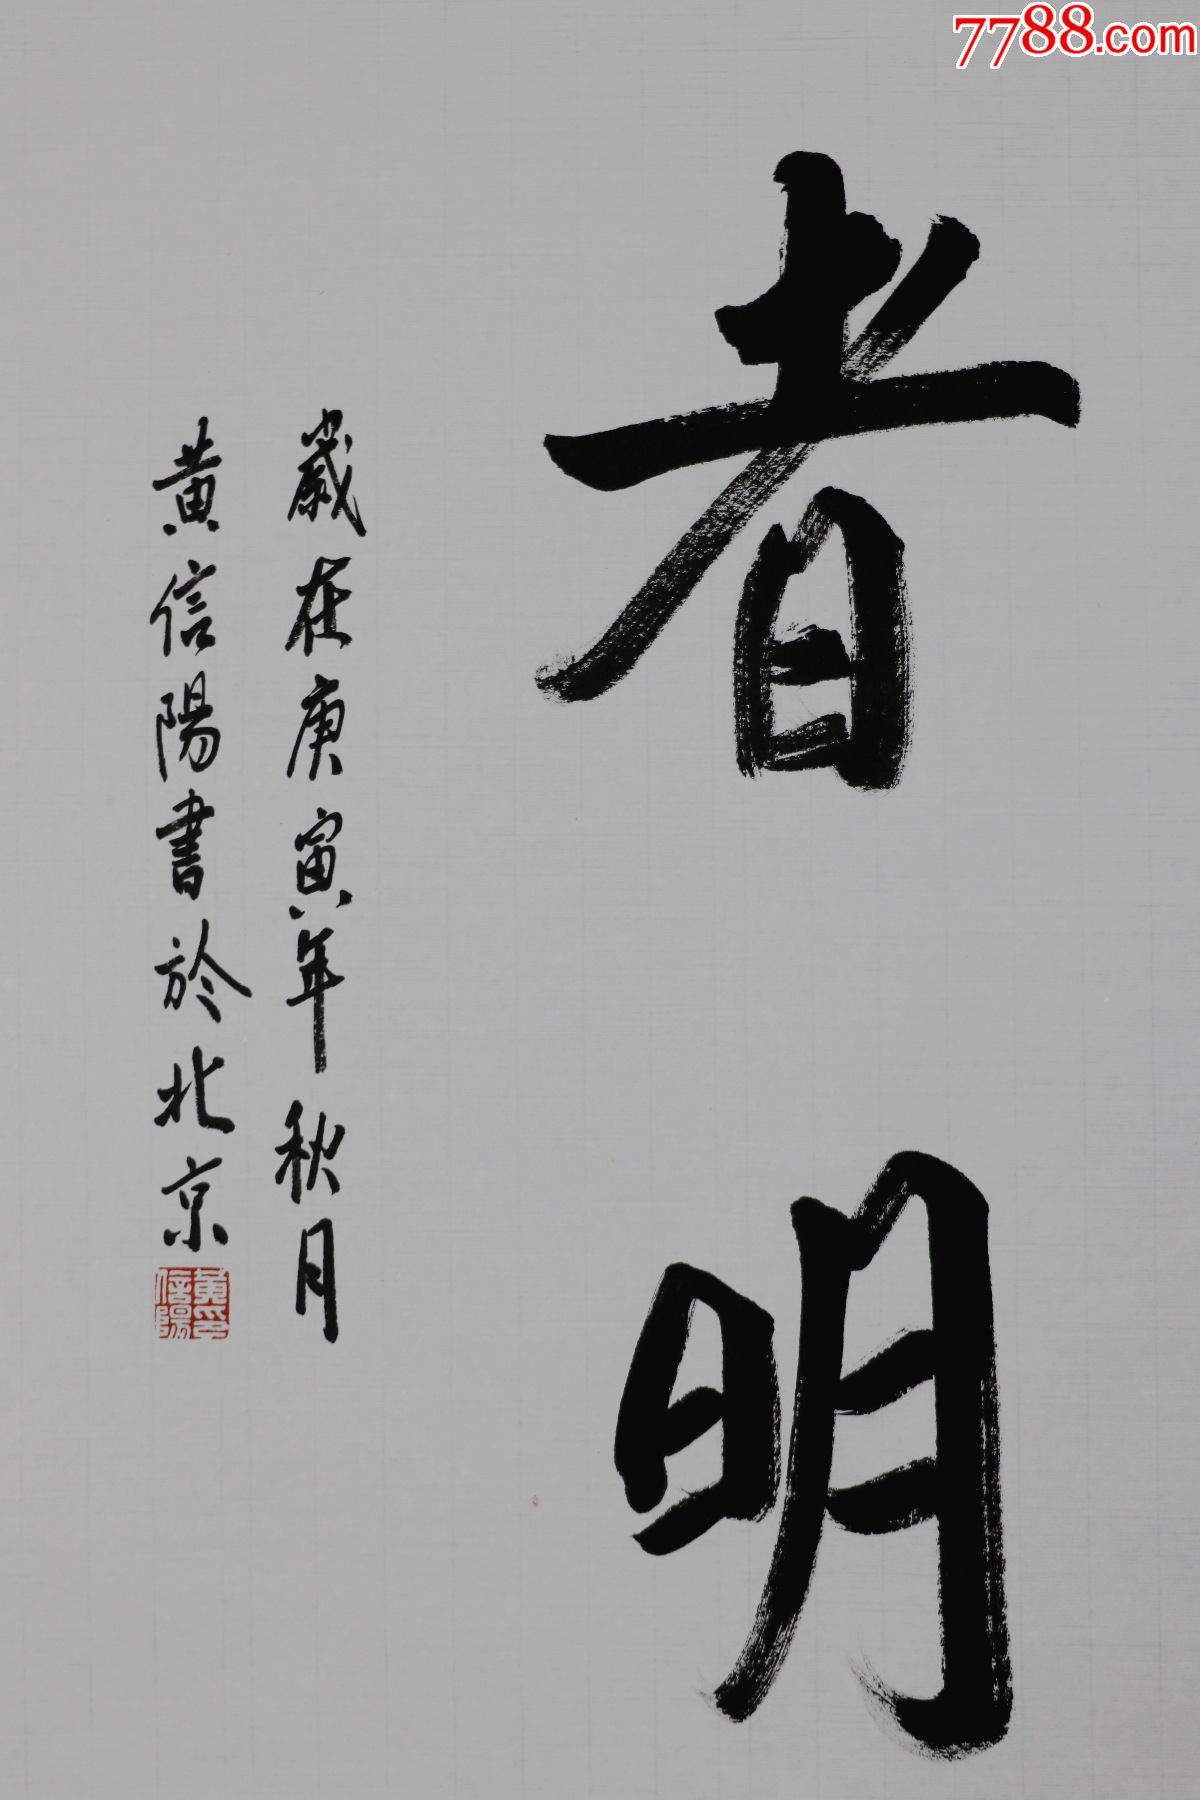 7788.com
者明
歲在庚寅年秋月
黄信陽書於北京
黄信陽印